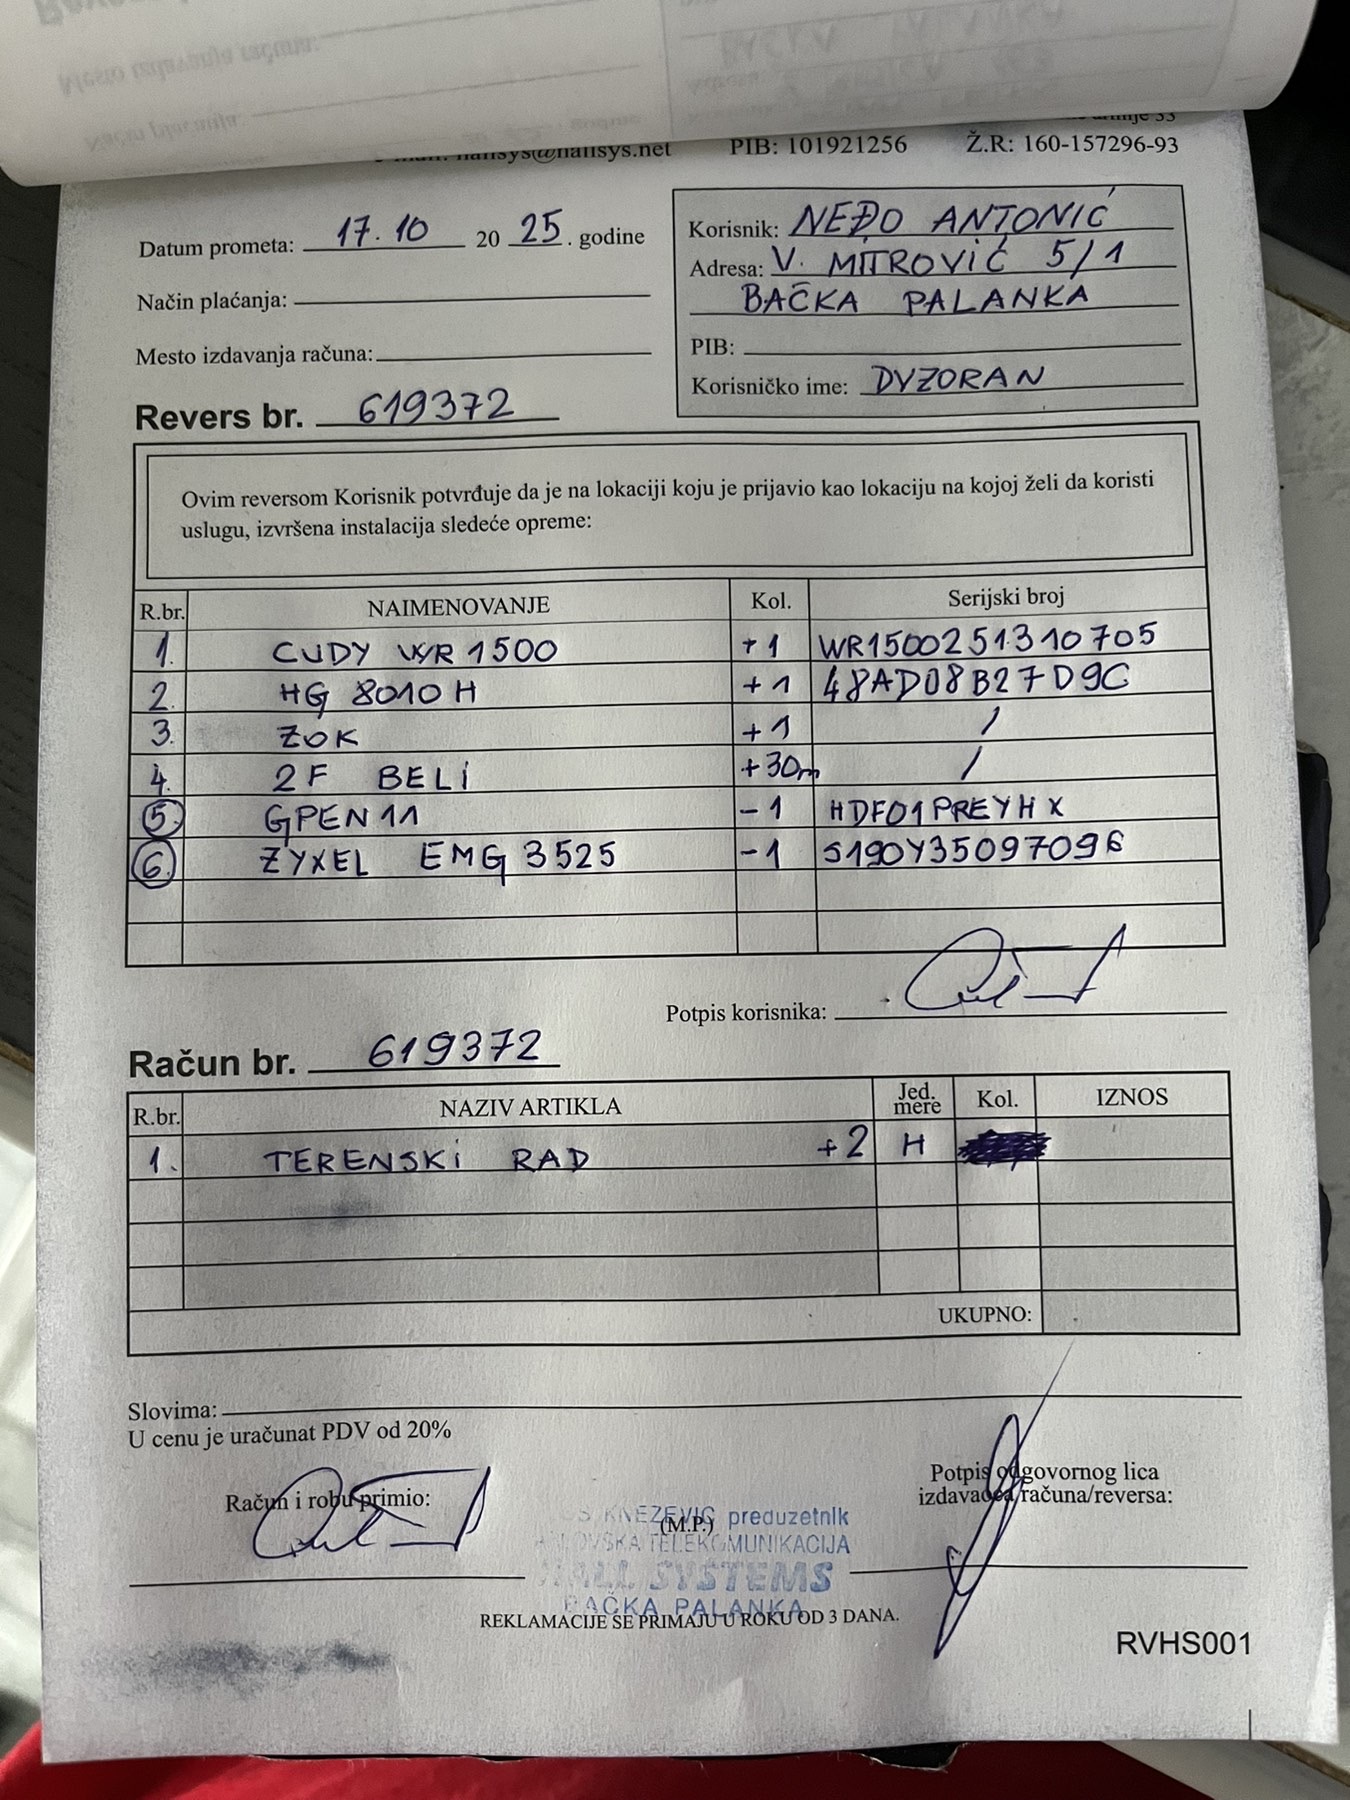 PIB: 101921256 Ž.R: 160-157296-93
Datum prometa: 17.10 20 25. godine
Način plaćanja:
Mesto izdavanja računa:
Korisnik: NEĐO ANTONIĆ
Adresa: V. MITROVIĆ 5/1
BAČKA PALANKA
PIB:
Korisničko ime: DVZORAN
Revers br. 619372
Ovim reversom Korisnik potvrđuje da je na lokaciji koju je prijavio kao lokaciju na kojoj želi da koristi
uslugu, izvršena instalacija sledeće opreme:
R.br. NAIMENOVANJE Kol. Serijski broj
1. CUDY WR 1500 +1 WR1500251310705
2. HG 8010H +1 48AD08B27D9C
3. ZOK +1 /
4. 2F BELI +30m /
5. GPEN11 -1 HDF01PREYHX
6. ZYXEL EMG 3525 -1 S190Y35097096
Potpis korisnika:
Račun br. 619372
R.br. NAZIV ARTIKLA Jed. mere Kol. IZNOS
1. TERENSKI RAD +2 H
UKUPNO:
Slovima:
U cenu je uračunat PDV od 20%
Račun i robu primio:
Potpis odgovornog lica
izdavaoca računa/reversa:
KNEZEVIC preduzetnik
(M.P.)
TELEKOMUNIKACIJA
SYSTEMS
BAČKA PALANKA
REKLAMACIJE SE PRIMAJU U ROKU OD 3 DANA.
RVHS001